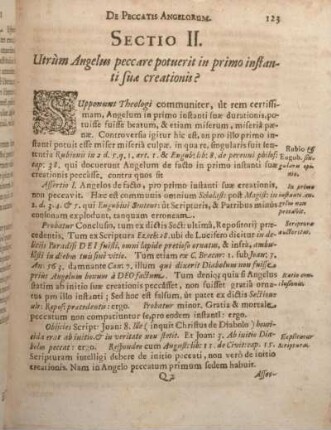 DE PECCATIS ANGELORUM. 123
SECTIO II.
Utrùm Angelus peccare potuerit in primo instan-
ti suæ creationis?
SUpponunt Theologi communiter, ut rem certissi-
mam, Angelum in primo instanti suæ durationis, po-
tuisse fuisse beatum, & etiam miserum, miseriâ pœ-
næ. Controversia igitur hic est, an pro illo primo in-
stanti potuerit esse miser miseriâ culpæ. in qua re, singularis fuit sen-
tentia Rubionis in 2. d. 7. q. 1. art. 1. & Eugub. lib: 8. de perenni philos:
cap. 38. qui docuerunt Angelum de facto in primo instanti suæ
creationis peccâsse, contra quos sit
Assertio I. Angelus de facto, pro primo instanti suæ creationis,
non peccavit. Hæc est communis omnium Scholast: post Magist: in
d. 3. 4. & 7. qui Eugubini Doctores & Scripturis, & Patribus minùs
consonam explodunt, tanquam erroneam.
Probatur Conclusio, tum ex dictis Sect: ultimâ, Repositorij præ-
cedentis. Tum ex Scriptura Ezech: 28. ubi de Lucifero dicitur in de-
litijs Paradisi DEI fuisti, omni lapide pretioso ornatus, & infra, ambu-
lasti in diebus tuis
Tum etiam ex C. Bracar: 1. sub Joan: 3.
An: 563. damnante Can: 7. illum qui dixerit Diabolum non fuisse
priùs Angelum bonum à DEO factum.
Tum deniq; quia si Angelus
statim ab initio suæ creationis peccâsset, non fuisset gratiâ orna-
tus pro illo instanti; Sed hoc est falsum, ut patet ex dictis Sectione
ult: Reposi: præcedentis: ergo. Probatur minor, Gratia & mortale,
peccatum non compatiuntur se, pro eodem instanti: ergo.
Objicies Script: Joan: 8. Ille (inquit Christus de Diabolo) homi-
cida erat ab initio & in veritate non stetit. Et Joan: 3. Ab initio Dia-
bolus peccat: ergo. Respondeo cum August: lib: 11. de Civit: cap. 15.
Scripturam intelligi debere de initio peccati, non verò de initio
creationis. Nam in Angelo peccatum primum sedem habuit.
Q 2 Asser-
Rubio &
Eugub.
In primo
instanti
non
peccavit.
Scripturæ
auctoritat.
Ratio con-
clusionis.
Explicatur
Scriptura.